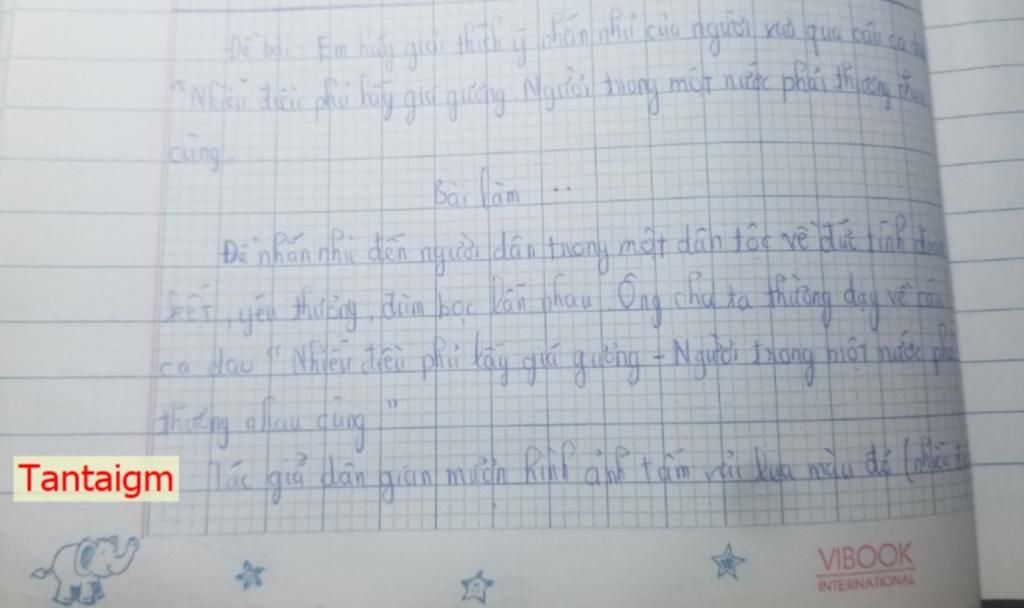 Đề bài: Em hãy giải thích ý nhắn nhủ của người xưa qua câu ca
"Nhiễu điều phủ lấy giá gương. Người trong một nước phải thương
cùng.
Bài làm
Để nhắn nhủ đến người dân trong một dân tộc về đức tính
kết, yêu thương, đùm bọc lẫn nhau. Ông cha ta thường dạy về câu
ca dao "Nhiễu điều phủ lấy giá gương - Người trong một nước
thương nhau cùng"
Tác giả dân gian mượn hình ảnh tấm vải lụa màu đỏ (nhiễu
Tantaigm
VIBOOK
INTERNATIONAL